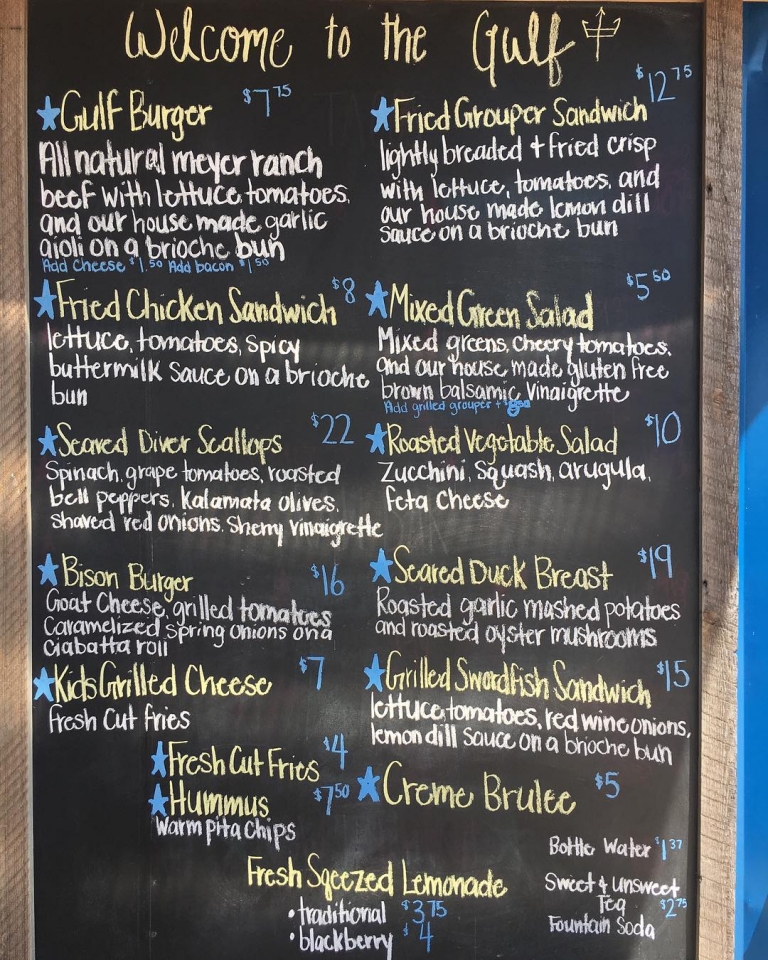 Welcome to the Gulf
Gulf Burger $7.75
All natural meyer ranch
beef with lettuce, tomatoes,
and our house made garlic
aioli on a brioche bun
Add Cheese $1.50 Add bacon $1.50
Fried Chicken Sandwich $8
lettuce, tomatoes, spicy
buttermilk sauce on a brioche
bun
Seared Diver Scallops $22
Spinach, grape tomatoes, roasted
bell peppers, Kalamata olives,
shaved red onions, Sherry Vinaigrette
Bison Burger $16
Goat Cheese, grilled tomatoes
Caramelized Spring Onions on a
ciabatta roll
Kids Grilled Cheese $7
fresh cut fries
Fresh Cut Fries $4
Hummus $7.50
Warm pita chips
Fried Grouper Sandwich $12.75
lightly breaded + fried crisp
with lettuce, tomatoes, and
our house made lemon dill
sauce on a brioche bun
Mixed Green Salad $5.50
Mixed greens, cheery tomatoes,
and our house made gluten free
brown balsamic Vinaigrette
Add grilled grouper +
Roasted Vegetable Salad $10
Zucchini, Squash, arugula,
feta cheese
Seared Duck Breast $19
Roasted garlic mashed potatoes
and roasted oyster mushrooms
Grilled Swordfish Sandwich $15
lettuce, tomatoes, red wine onions,
lemon dill sauce on a brioche bun
Creme Brulee $5
Fresh Sqeezed Lemonade
• traditional $3.75
• blackberry $4
Bottle Water $1.37
Sweet & Unsweet
Tea $2.75
Fountain Soda